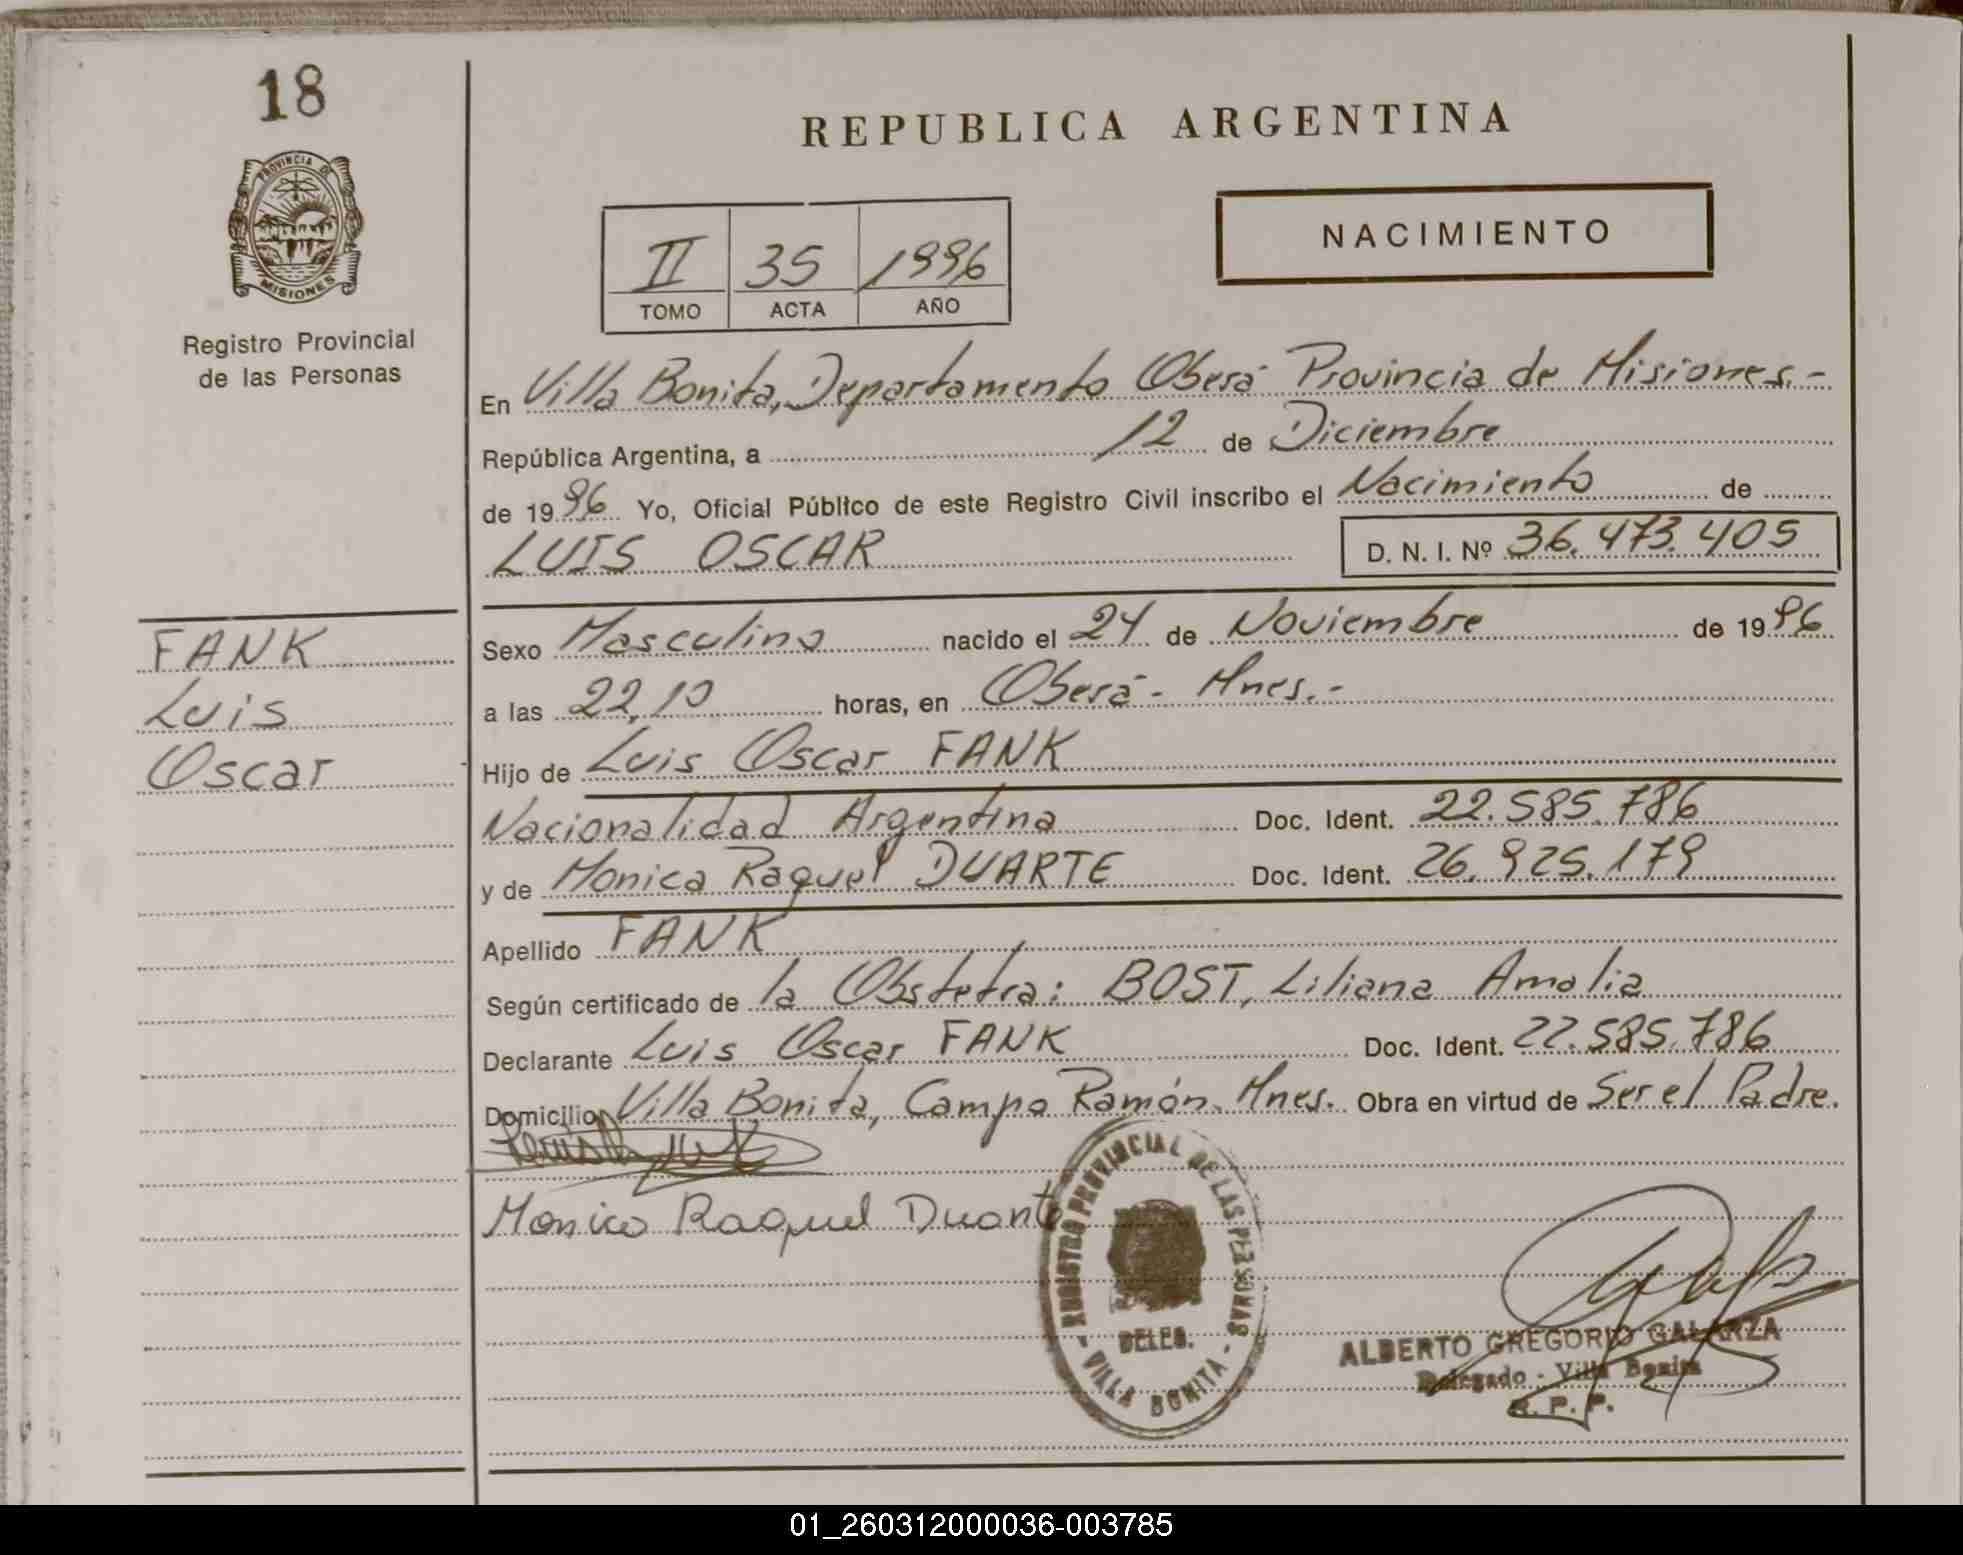 18
PROVINCIA DE
MISIONES
Registro Provincial
de las Personas
REPUBLICA ARGENTINA
II 35 1996
TOMO ACTA AÑO
NACIMIENTO
En Villa Bonita, Departamento Oberá Provincia de Misiones.-
República Argentina, a 12 de Diciembre
de 1996 Yo, Oficial Público de este Registro Civil inscribo el Nacimiento de
LUIS OSCAR D. N. I. Nº 36.473.405
FANK
Luis
Oscar
Sexo Masculino nacido el 24 de Noviembre de 1996
a las 22,10 horas, en Oberá - Mnes.-
Hijo de Luis Oscar FANK
Nacionalidad Argentina Doc. Ident. 22.585.786
y de Monica Raquel DUARTE Doc. Ident. 26.925.179
Apellido FANK
Según certificado de la Obstetra: BOST, Liliana Amalia
Declarante Luis Oscar FANK Doc. Ident. 22.585.786
Domicilio Villa Bonita, Campo Ramón. Mnes. Obra en virtud de Ser el Padre.
Monica Raquel Duarte
REGISTRO PROVINCIAL DE LAS PERSONAS
DELEG.
- VILLA BONITA -
ALBERTO GREGORIO GALARZA
Delegado - Villa Bonita
R. P. P.
01_260312000036-003785